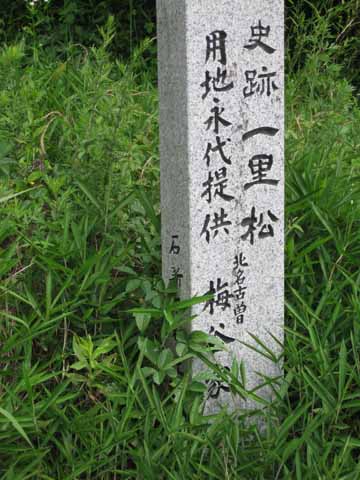 史跡 一里松
用地永代提供
北名古曽 梅谷家
石新